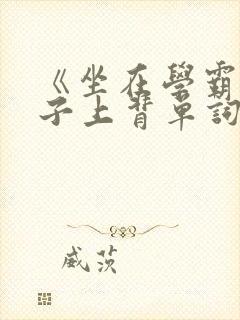 《坐在學霸
子上背單詞
威茨